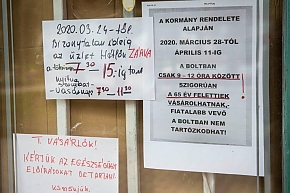 2020.03.24-től
Bizonytalan ideig
az üzlet Hétfőn ZÁRVA
7³⁰ 15:ig tart
nyitva
Szombat-
Vasárnap 7³⁰-11³⁰
T. VÁSÁRLÓK!
KÉRJÜK AZ EGÉSZSÉGÜGYI
ELŐÍRÁSOKAT BETARTANI
A KORMÁNY RENDELETE
ALAPJÁN
2020. MÁRCIUS 28-TÓL
ÁPRILIS 11-IG
A BOLTBAN
CSAK 9 - 12 ÓRA KÖZÖTT
SZIGORÚAN
A 65 ÉV FELETTIEK
VÁSÁROLHATNAK,
FIATALABB VEVŐ
A BOLTBAN NEM
TARTÓZKODHAT!